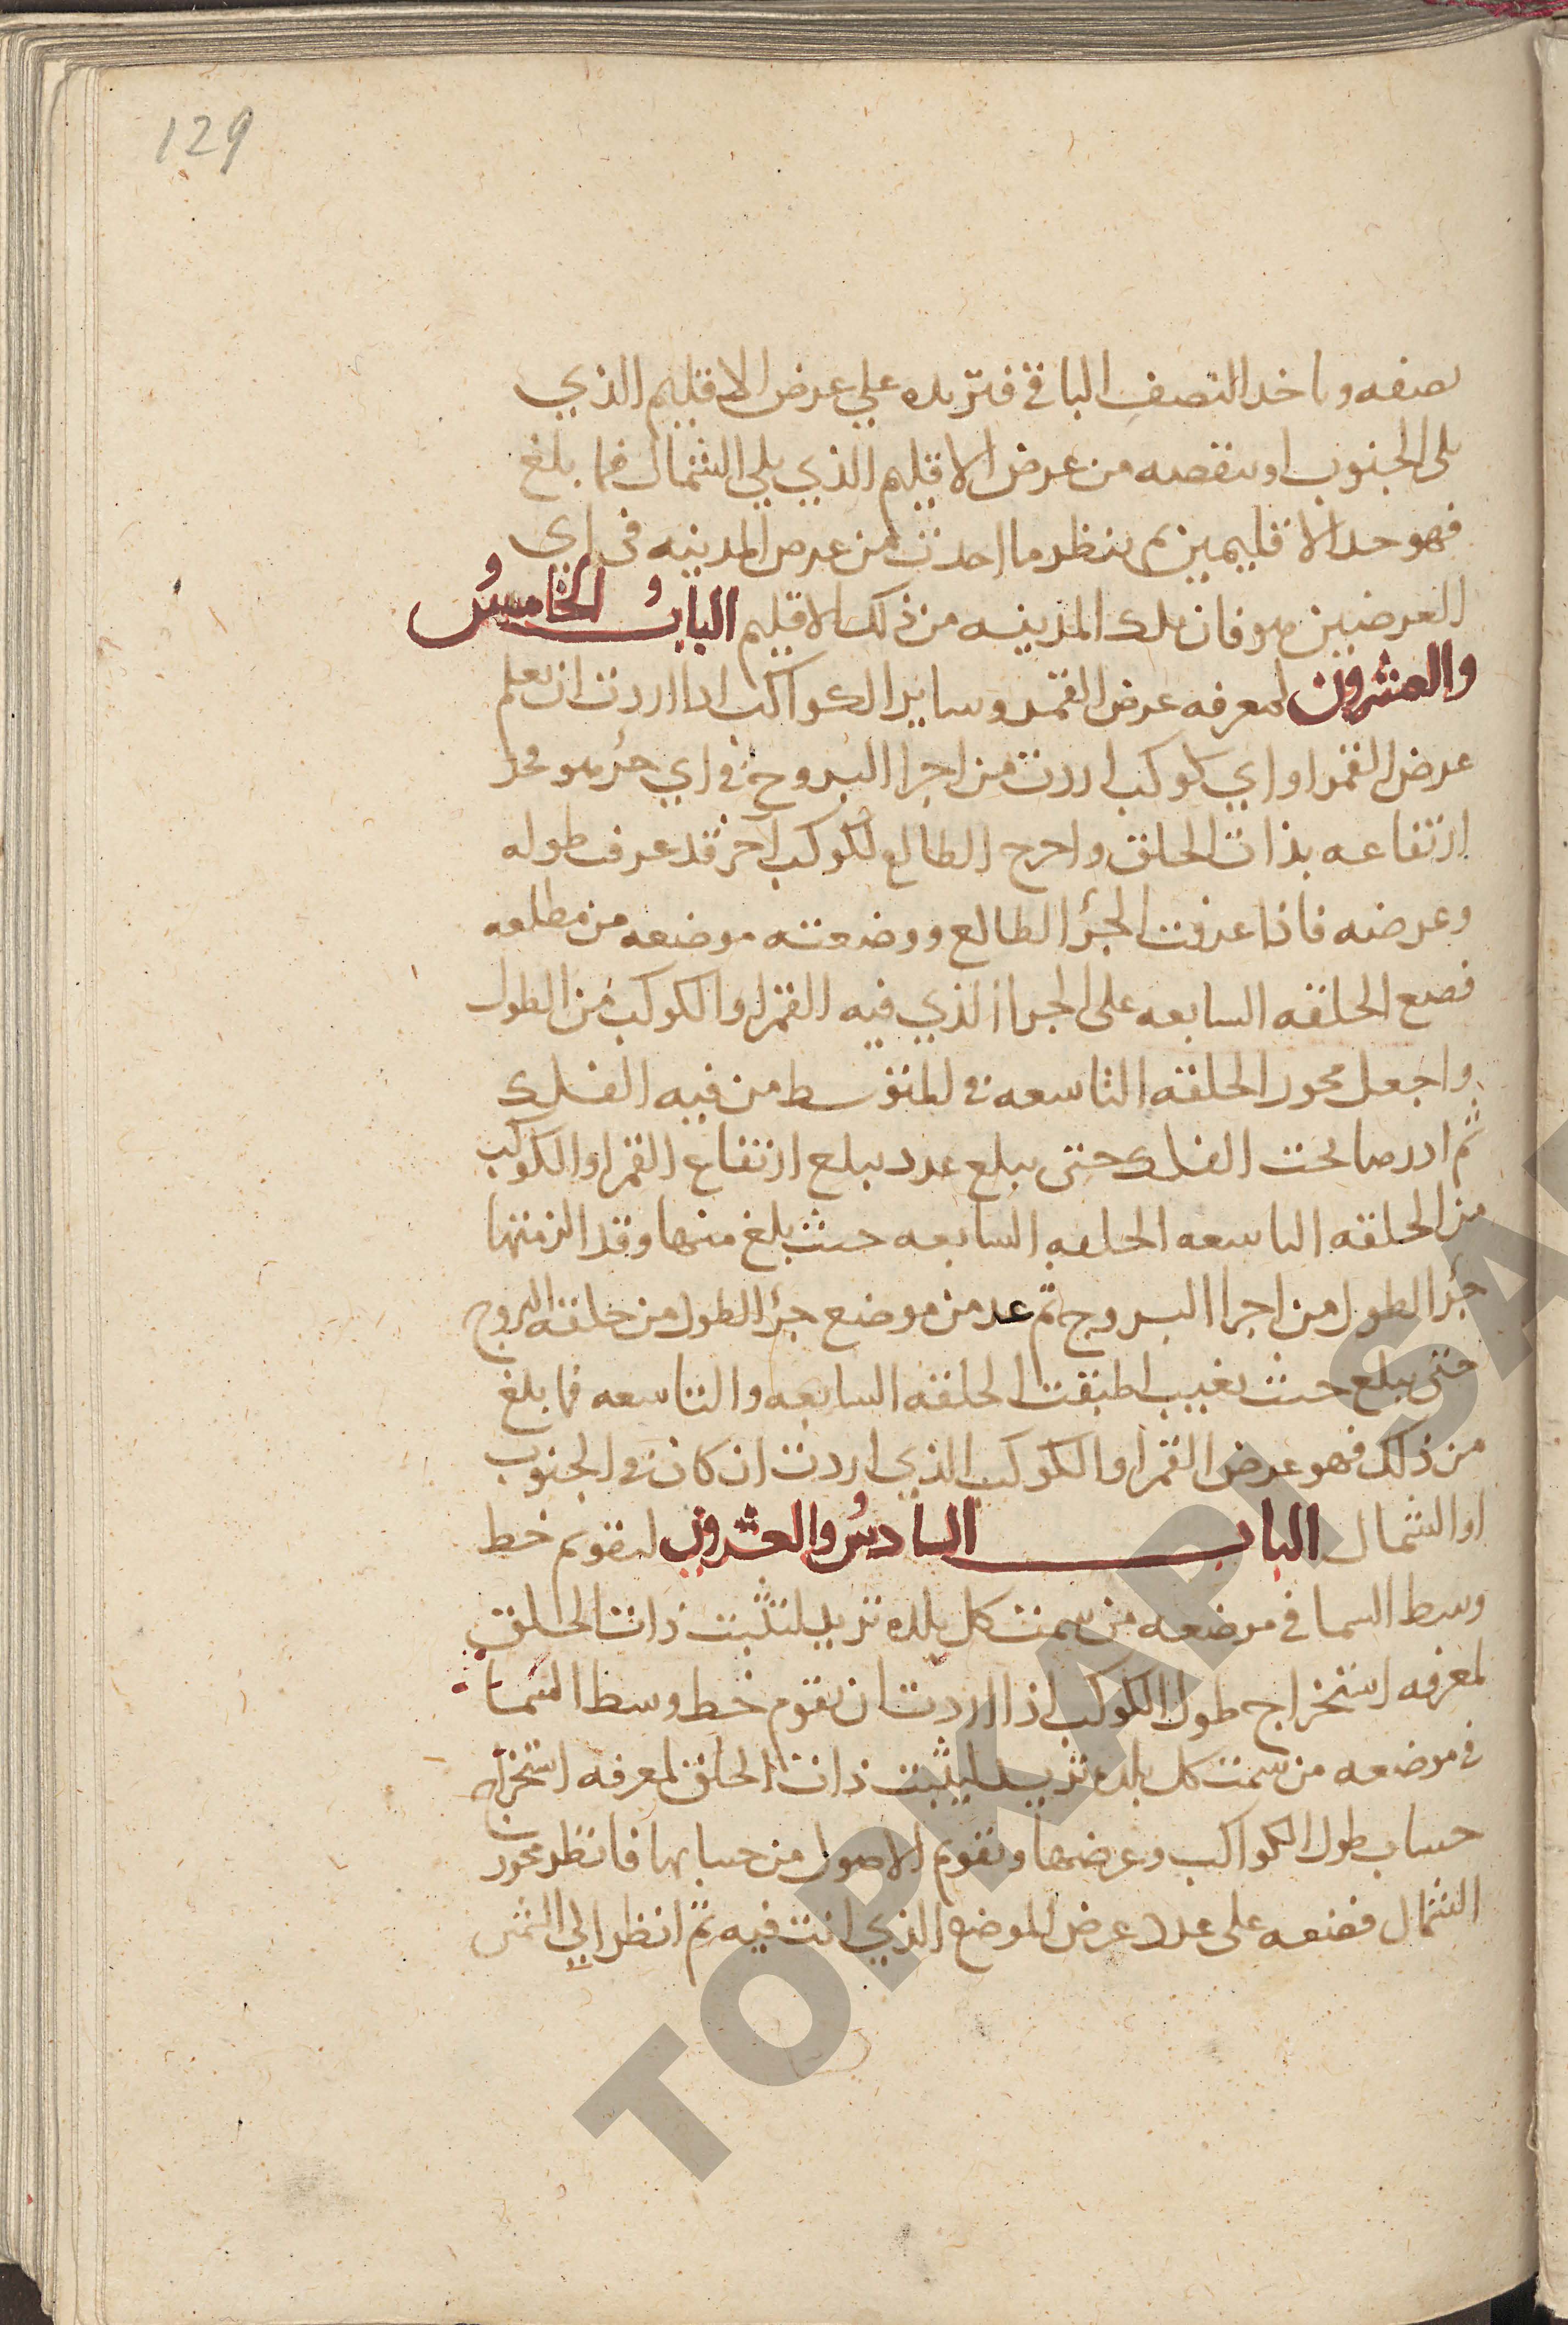 129
نصفه وياخد النصف الباقي فتزيده علي عرض الاقليم الذي
يلى الجنوب او ينقصه من عرض الاقليم الذي يلي الشمال فما بلغ
فهو حد الاقليمين ثم ينظر ما احدت من عرض المدينه في اي
العرضين هو فان تلك المدينه من ذلك الاقليم البابُ الخامسُ
والعشرون لمعرفه عرض القمر وساير الكواكب اذا اردت ان تعلم
عرض القمر او اي كوكب اردت من اجزا البروج في اي جزء هو فخذ
ارتفاعه بذات الحلق واخرج الطالع لكوكب اخر قد عرف طوله
وعرضه فاذا عرفت الجزء الطالع ووضعته موضعه من مطلعه
فضع الحلقه السابعه على الجزا الذي فيه القمر او الكوكب من الطول
واجعل محور الحلقه التاسعه في المتوسط من فيه الفلك
ثم ادرها تحت الفلك حتى يبلغ عدد يبلغ ارتفاع القمر او الكوكب
من الحلقه التاسعه الحلقه السابعه حيث بلغ منها وقد الزمتها
جزء الطول من اجزا البروج ثم عد من موضع جزء الطول من حلقه البروج
حتى يبلغ حيث تغيب اطبقت الحلقه السابعه والتاسعه فما بلغ
من ذلك فهو عرض القمر او الكوكب الذي اردت ان كان في الجنوب
او الشمال الباب السادسُ والعشرون لتقويم خط
وسط السما في موضعه من سمت كل بلده تريد لتثبت ذات الحلق
لمعرفه استخراج طول الكوكب اذا اردت ان تقوم خط وسط السما
في موضعه من سمت كل بلده تريد ليثبت ذات الحلق لمعرفه استخراج
حساب طول الكواكب وعرضها وتقويم الاصول من حسابها فانظر محور
الشمال فضعه على عدد عرض الموضع الذي انت فيه ثم انظر الي الشمس
TOPKAPI SA